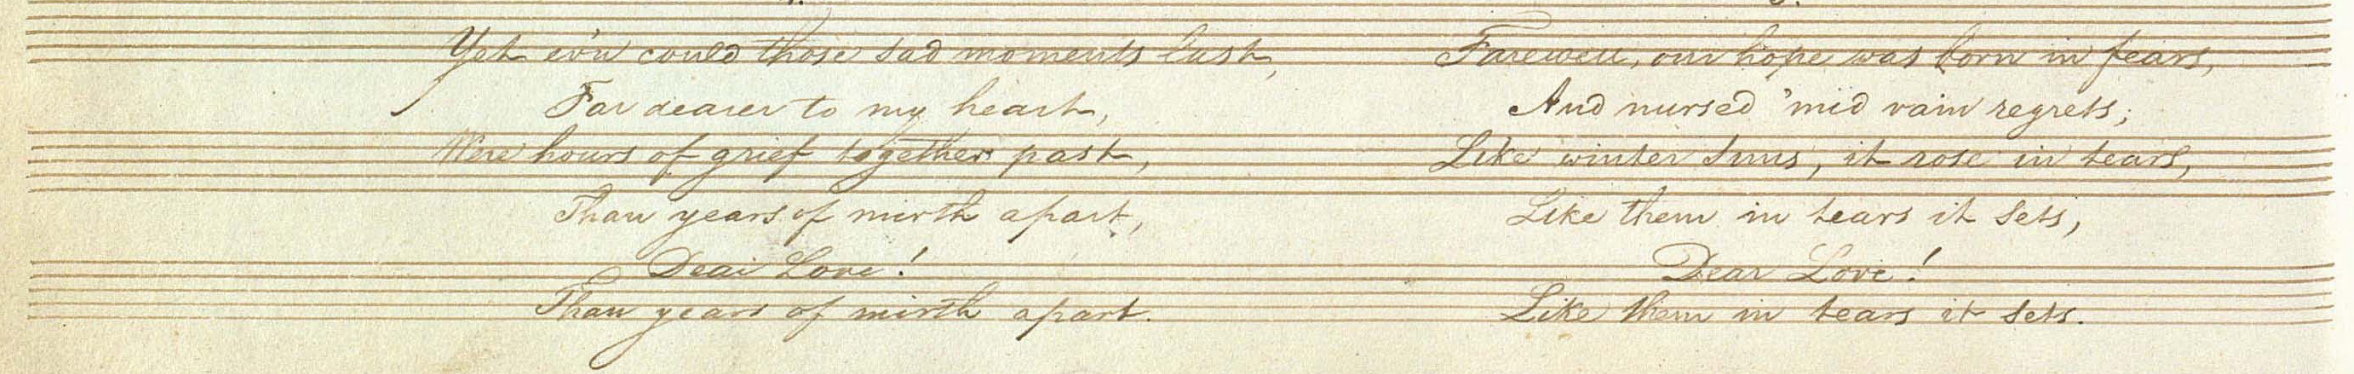 Yet ev'n could those sad moments last,
Far dearer to my heart,
Were hours of grief together past,
Than years of mirth apart,
Dear Love!
Than years of mirth apart.
Farewell, our hope was born in fears,
And nursed 'mid vain regrets;
Like winter suns, it rose in tears,
Like them in tears it sets,
Dear Love!
Like them in tears it sets.